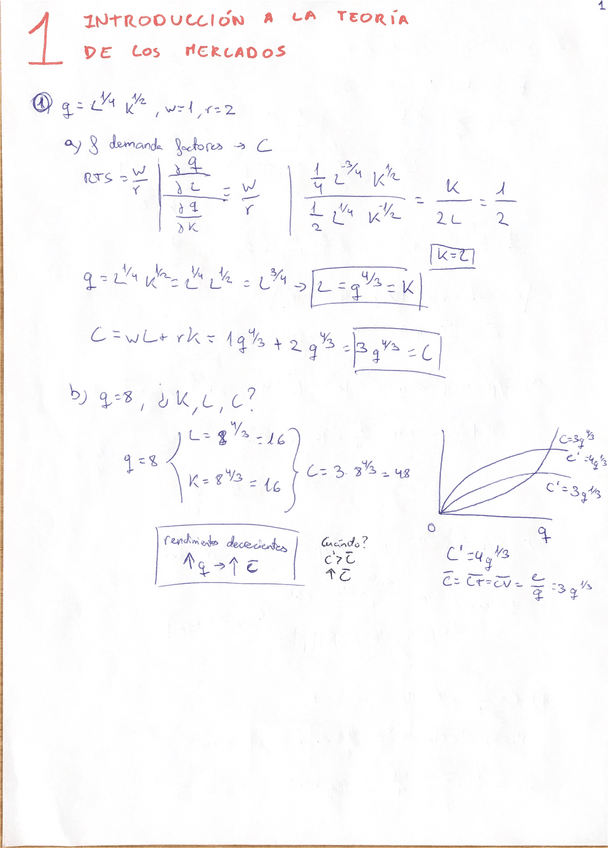 1
1 INTRODUCCIÓN A LA TEORÍA
DE LOS MERCADOS
① q = L^1/4 K^1/2, w=1, r=2
a) demanda factores → C
RTS = w/r | (∂q/∂L)/(∂q/∂K) = w/r | (1/4 L^-3/4 K^1/2)/(1/2 L^1/4 K^-1/2) = K/2L = 1/2
K=L
q = L^1/4 K^1/2 = L^1/4 L^1/2 = L^3/4 → L = q^4/3 = K
C = wL + rK = 1q^4/3 + 2q^4/3 = 3q^4/3 = C
b) q=8, ¿K, L, C?
q=8 { L = 8^4/3 = 16
K = 8^4/3 = 16 } C = 3·8^4/3 = 48
C=3q^4/3
C'=4q^1/3
C'=3q^1/3
0 q
rendimientos dececientes
↑q → ↑C̅
Cuándo?
C'>C̅
↑C̅
C'=4q^1/3
C̅=C̅T̅=C̅V̅= C/q =3q^1/3